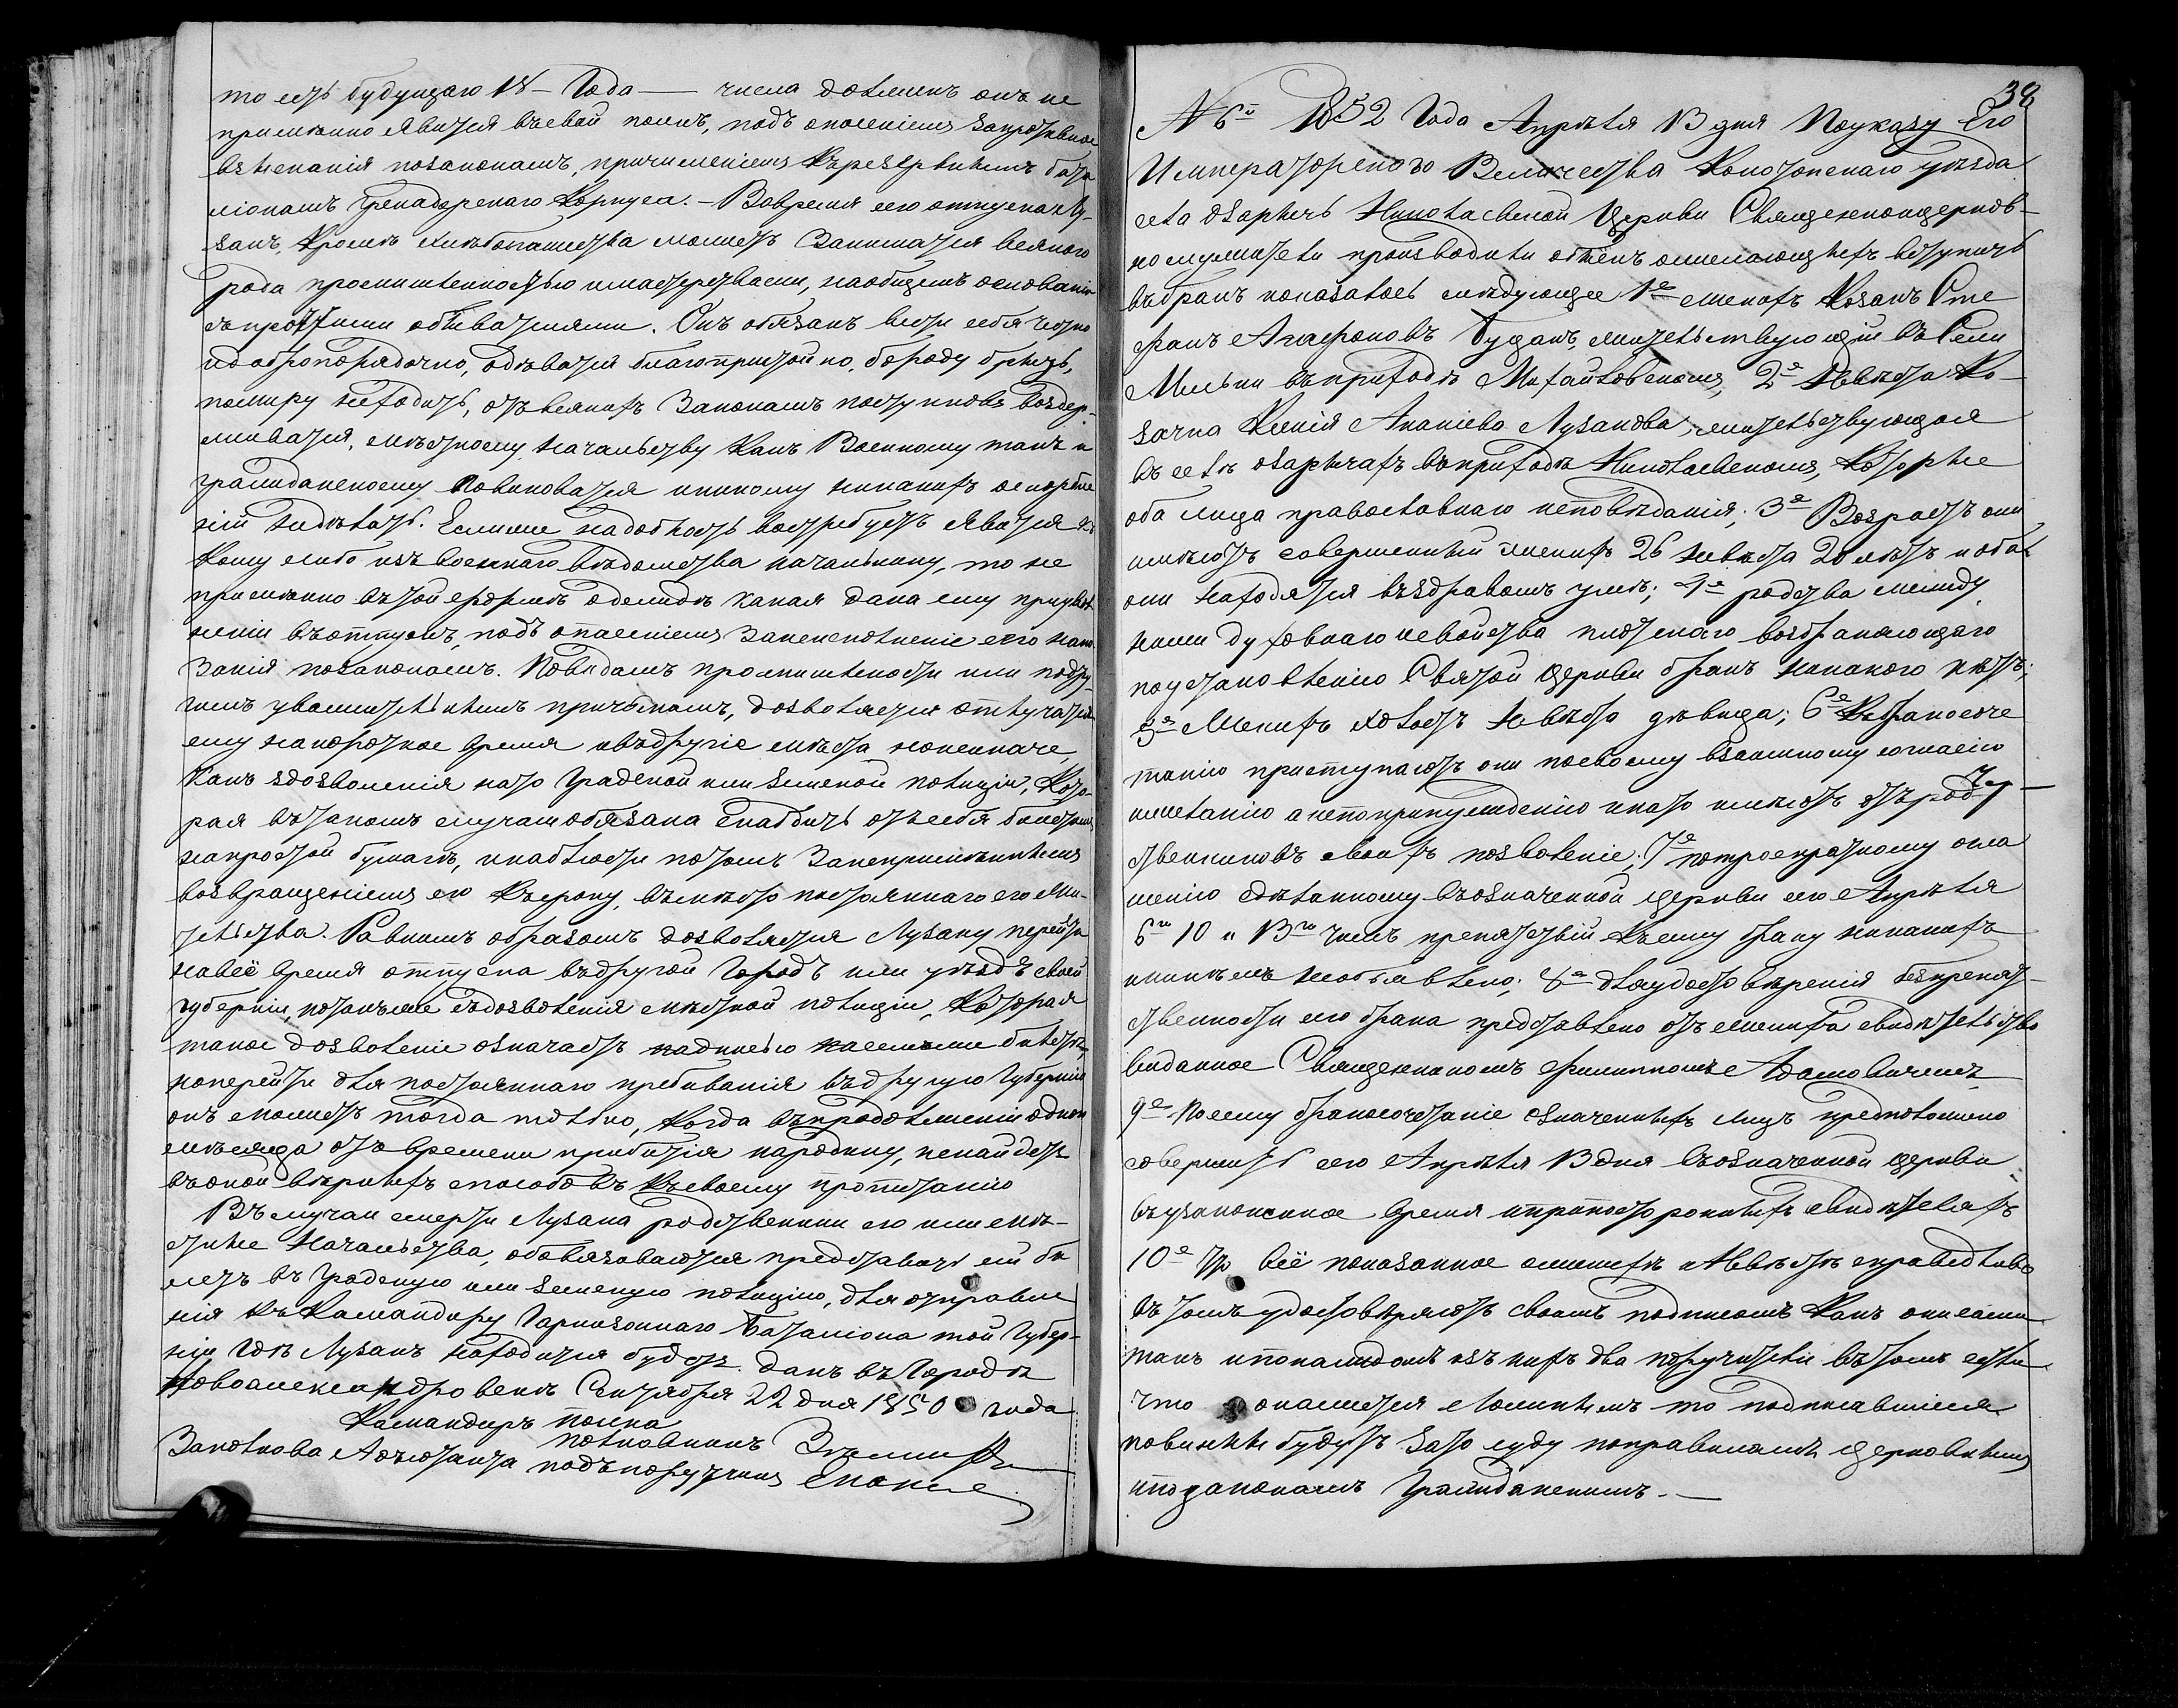 то есть будущаго 18– Года — числа долженъ онъ не
премѣнно явится въсвой полкъ, подъ опасеніемъ запротивное
взысканія позаконамъ, причисленіемъ Кърезервнымъ бата
ліонамъ Гренадерскаго Корпуса. – Вовремя его отпуска Лу-
занъ, Кромѣ хлѣбопашества можетъ Заниматся всякого
рода промышленностью имастерствами, наобщемъ основаніи
съпротчими обывателями. Онъ обязанъ вести себя честно
идобропорядочно, одѣватся благопристойно, бороду брить,
помиру неходить, отъвсякихъ Законамъ поступковъ воздер-
живатся, мѣстному начальству Какъ Военному такъ и
гражданскому Повиноватся иникому никакихъ оскорбле
ній недѣлать. Еслиже надобность востребуетъ явится къ
Кому либо изъ военнаго вѣдомства начальнику, то не
премѣнно вътой формѣ одежды какая дана ему приувол
неніи въотпускъ, подъ опасеніемъ Занеисполненіе сего нака
Занія позаконамъ. Повидамъ промышлености или подру-
гимъ уважительнымъ причинамъ, дозволяется отлучатся
ему накороткое время ивъдругіе мѣста, неиначе,
Какъ здозволенія нато Градской или Земской полиціи, Кото-
рая вътакомъ случаи обязана Снабдить отъсебя билетомъ
напростой бумагѣ, инаблюсти потомъ Занепримѣннымъ
возвращеніемъ его Късроку, въмѣсто постояннаго его жи-
тельства. Равнымъ образомъ дозволяется Лузану перейти
навсё время отпуска въдругой Городъ или уѣздъ своей
губерніи, потомуже съдозволенія мѣстной полиціи, Которая
такое дозволеніе означаетъ надписью насемъже билетѣ,
ноперейти для постояннаго пребыванія въдругую Губернію
онъ можетъ тогда только, Когда въпродолженіи одного
мѣсяца отъ времени прибытія народину, ненайдетъ
въоной вѣрныхъ способовъ Късвоему пропитанію
Въслучаи смерти Лузана родственники его или мѣ-
стные Начальства, обовязоваются представить сей би
летъ въ Градскую или Земскую полицію, для отправле
нія къ Командиру Гарнизоннаго Баталіона той Губер-
ніи Где Лузанъ находится будетъ. Данъ въ Городѣ
Новоалександровскѣ Сентября 22 дня 1850 года
Командиръ полка
полковникъ
Заполкова Адъютанта подъпоручикъ
38
№ 6й 1852 Года Апрѣля 13 дня Поуказу Его
Императорскаго Величества Конотопскаго уѣзда
села Озаричь Николаевской Церкви Священноцерков-
нослужители производили обыскъ ожелающихъ вступить
въбракъ иоказалось слѣдующее 1е Женихъ Козакъ Сте
фанъ Агафоновъ Буданъ, жительствующій въ Селѣ
въприходѣ Михайловскомъ, 2е Невѣста Ко-
зачка Ксенія Ананіева Лузанова, жительствующая
въселѣ озаричахъ въприходѣ Николаевскомъ, Которые
оба лица православнаго исповѣданія; 3е Возрастъ они
имѣютъ совершенный Женихъ 26 невѣста 20 лѣтъ иоба
они находятся въздравомъ умѣ; 4е родства между
ними духовнаго исвойства плотскаго возбраняющаго
поустановленію Святой Церкви бракъ никакого нѣтъ;
5е Женихъ холостъ невѣста дѣвица; 6е Къбракосоче
танію приступаютъ они посвоему взаимному согласію
ижеланію анепопринужденію инато имѣютъ отъ род-
ственниковъ своихъ позволеніе; 7е потроекратному огла
шенію здѣланному въозначенной церкви сего Апрѣля
6го 10 и 13го числъ препятствій къ сему браку никакихъ
иникѣмъ необъявлено; 8е дляудостовѣренія безпрепят-
ственности сего брака представлено отъ жениха свидѣтельство
выданное Священникомъ Филиппомъ Адамовичемъ
9е Посему бракосочетаніе означенныхъ лицъ предположено
совершить сего Апрѣля 13 дня въозначенной церкви
въузаконенное время ипри постороннихъ свидѣтеляхъ
10е Что всё показанное оженихѣ иНевѣстѣ справедливо
въ томъ удостовѣряютъ своимъ подписомъ Какъ они сами
такъ ипокаждомъ изъ нихъ два поручители въ томъ если
что окажется Ложнымъ то подписавшіеся
повинны будутъ зато суду поправиламъ церковнымъ
ипозаконамъ Гражданскимъ. —